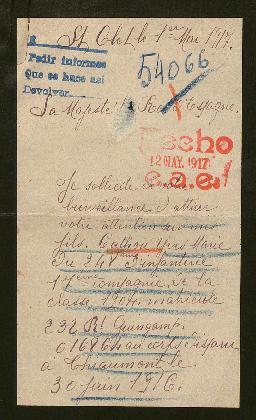 St Calais le 1er Mai 1917.
Pedir informes
Que se hace asi
Devolver
54066
Sa Majesté le Roi d'Espagne.
Hecho
12 MAY. 1917
Je sollicite de votre
bienveillance d'attirer
votre attention sur mon
fils. Yves Marie
Du 248 d'infanterie
17eme compagnie, de la
classe 1904. matricule
232 Rt Guingamp.
016964 au corps. disparu
à Chaumont le
30 juin 1916.